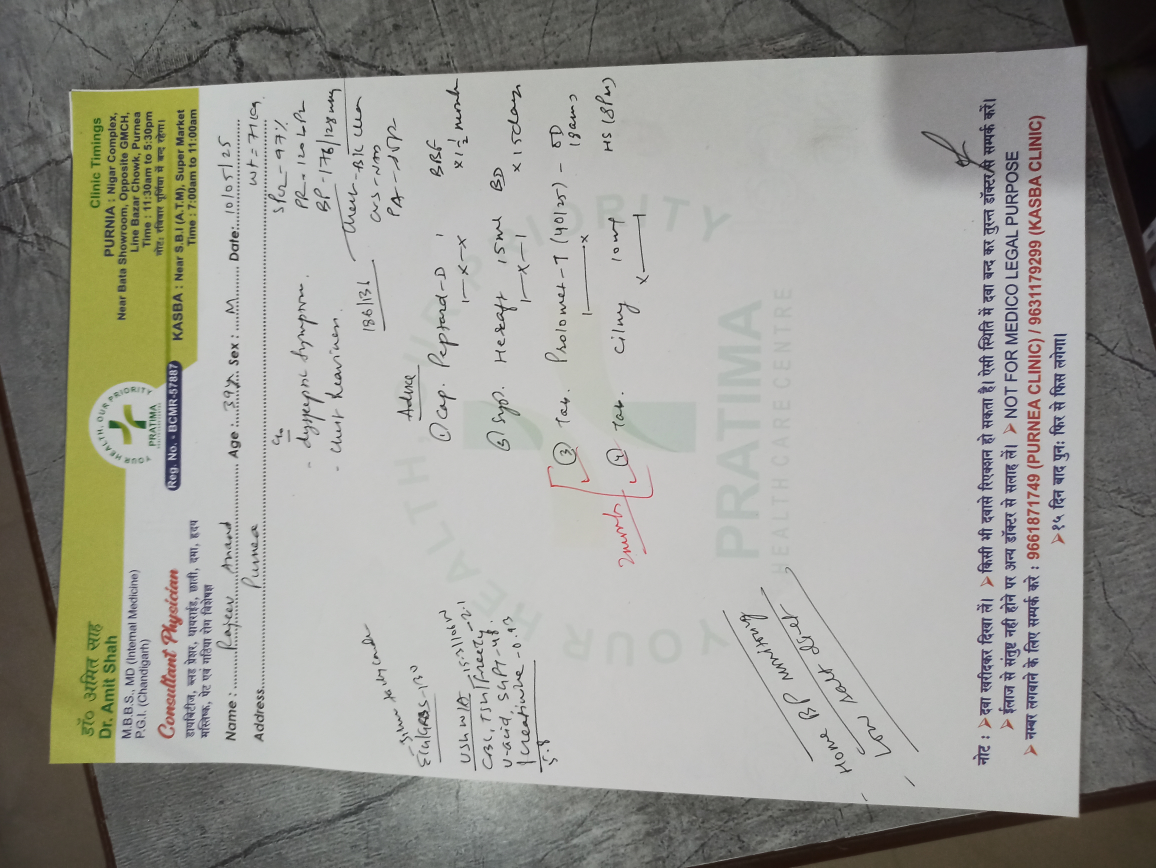 डॉ० अमित साह
Dr. Amit Shah
M.B.B.S., MD (Internal Medicine)
P.G.I. (Chandigarh)
Consultant Physician
डायबिटीज, ब्लड प्रेशर, थायराईड, छाती, दमा, हृदय
मस्तिष्क, पेट एवं गठिया रोग विशेषज्ञ
YOUR HEALTH, OUR PRIORITY
PRATIMA
Reg. No. - BCMR-57887
Clinic Timings
PURNIA : Nigar Complex,
Near Bata Showroom, Opposite GMCH,
Line Bazar Chowk, Purnea
Time : 11:30am to 5:30pm
नोट: रविवार पूर्णिया में बन्द रहेगा।
KASBA : Near S.B.I (A.T.M), Super Market
Time : 7:00am to 11:00am
Name : Rajeev Anand Age : 39y Sex : M Date: 10/05/25
Address Purnea wt = 71kg
c/o
- dyspeptic symptoms.
- Chest heaviness.
SPO2 - 97%
PR - 120
BP - 176/128
186/136
Chest - B/L clear
CVS - NAD
PA -
ECG/GRBS - 130
- 15/3/10
CBC, TSH/ - 2.1
U-acid, SGPT - 48
5.8 Creatinine - 0.93
Advice
① Cap. Peptard-D 1 BBF
1-x-x x 1½ month
② Syp. 15ml BD
1-x-1 x 15 days
③ Tab. Prolomet-T (40/25) - OD
1-x 18ams
④ Tab. Cilny 10mg HS (8Pm)
x-1
2 month
Home BP monitoring
- Low salt diet
YOUR HEALTH OUR PRIORITY
PRATIMA
HEALTHCARE CENTRE
नोट : ➤ दवा खरीदकर दिखा लें। ➤ किसी भी दवा से रिएक्शन हो सकता है। ऐसी स्थिति में दवा बन्द कर तुरन्त डॉक्टर से सम्पर्क करें।
➤ ईलाज से संतुष्ट नही होने पर अन्य डॉक्टर से सलाह लें। ➤ NOT FOR MEDICO LEGAL PURPOSE
➤ नम्बर लगवाने के लिए सम्पर्क करे : 9661871749 (PURNEA CLINIC) / 9631179299 (KASBA CLINIC)
➤ १५ दिन बाद पुनः फिर से फिस लगेगा।